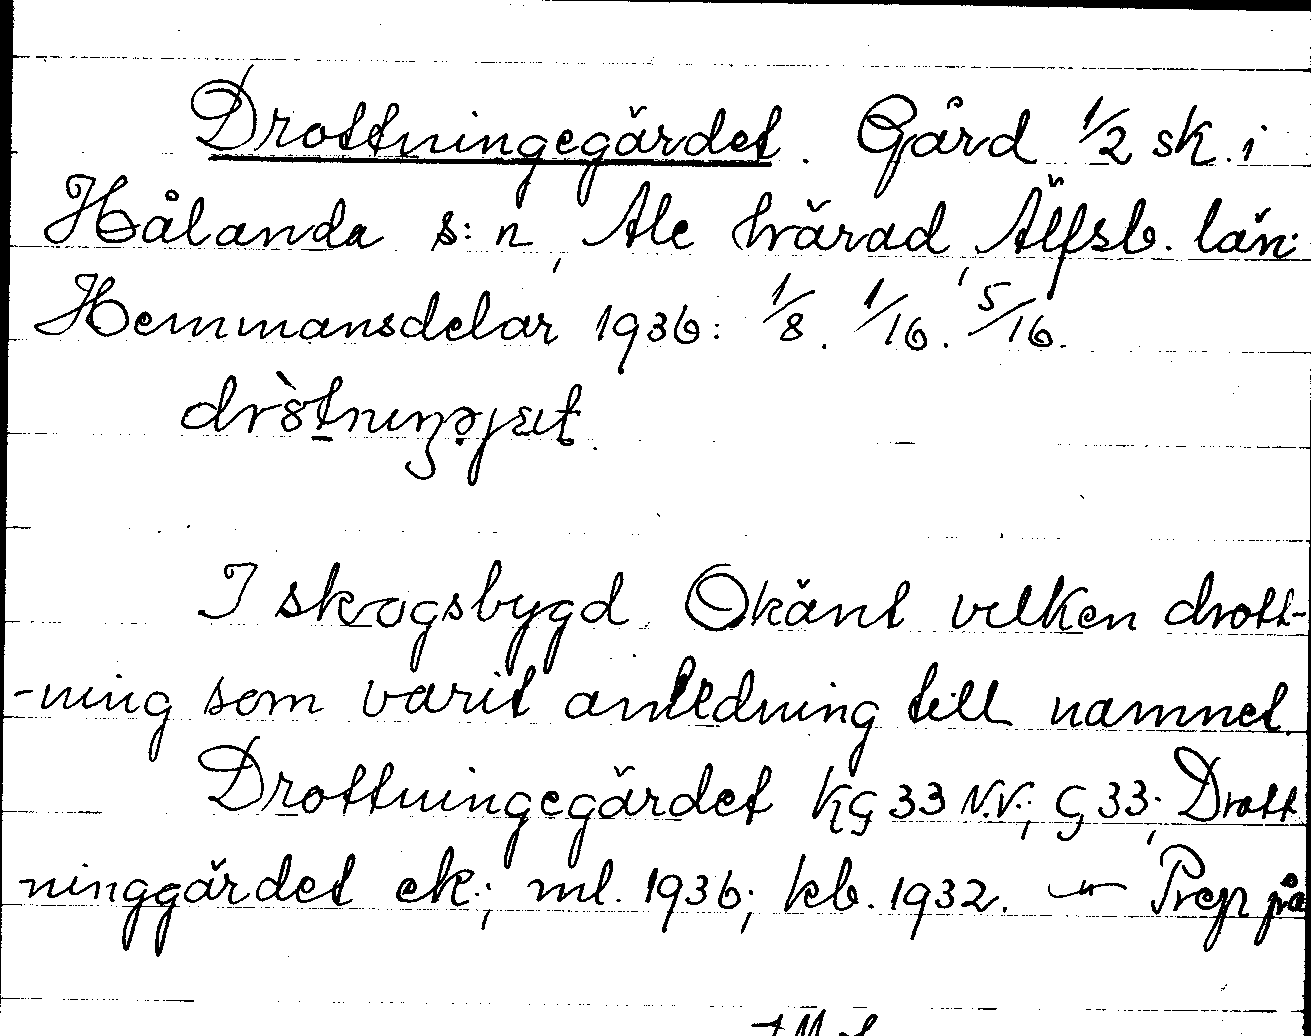 Drottningegärdet. Gård 1/2 sk. i
Hålanda s:n, Ale härad, Älfsb. län.
Hemmansdelar 1936: 1/8. 1/16. 5/16.
I skogsbygd. Okänt vilken drott-
-ning som varit anledning till namnet.
Drottningegärdet KG 33 N.V.; G 33; Drott
ninggärdet ek.; ml. 1936; kb. 1932. — Prep på